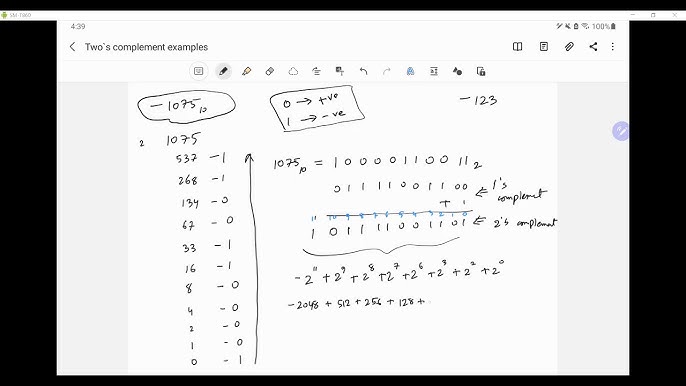 SM-T860
4:39
100%
Two`s complement examples
-1075₁₀
0 → +ve
1 → -ve
-123
2 1075
537 - 1
268 - 1
134 - 0
67 - 0
33 - 1
16 - 1
8 - 0
4 - 0
2 - 0
1 - 0
0 - 1
1075₁₀ = 1 0 0 0 0 1 1 0 0 1 1₂
0 1 1 1 1 0 0 1 1 0 0 ⇐ 1's complemet
+ 1
11 10 9 8 7 6 5 4 3 2 1 0
1 0 1 1 1 1 0 0 1 1 0 1 ⇐ 2's complement
-2¹¹ + 2⁹ + 2⁸ + 2⁷ + 2⁶ + 2³ + 2² + 2⁰
-2048 + 512 + 256 + 128 +